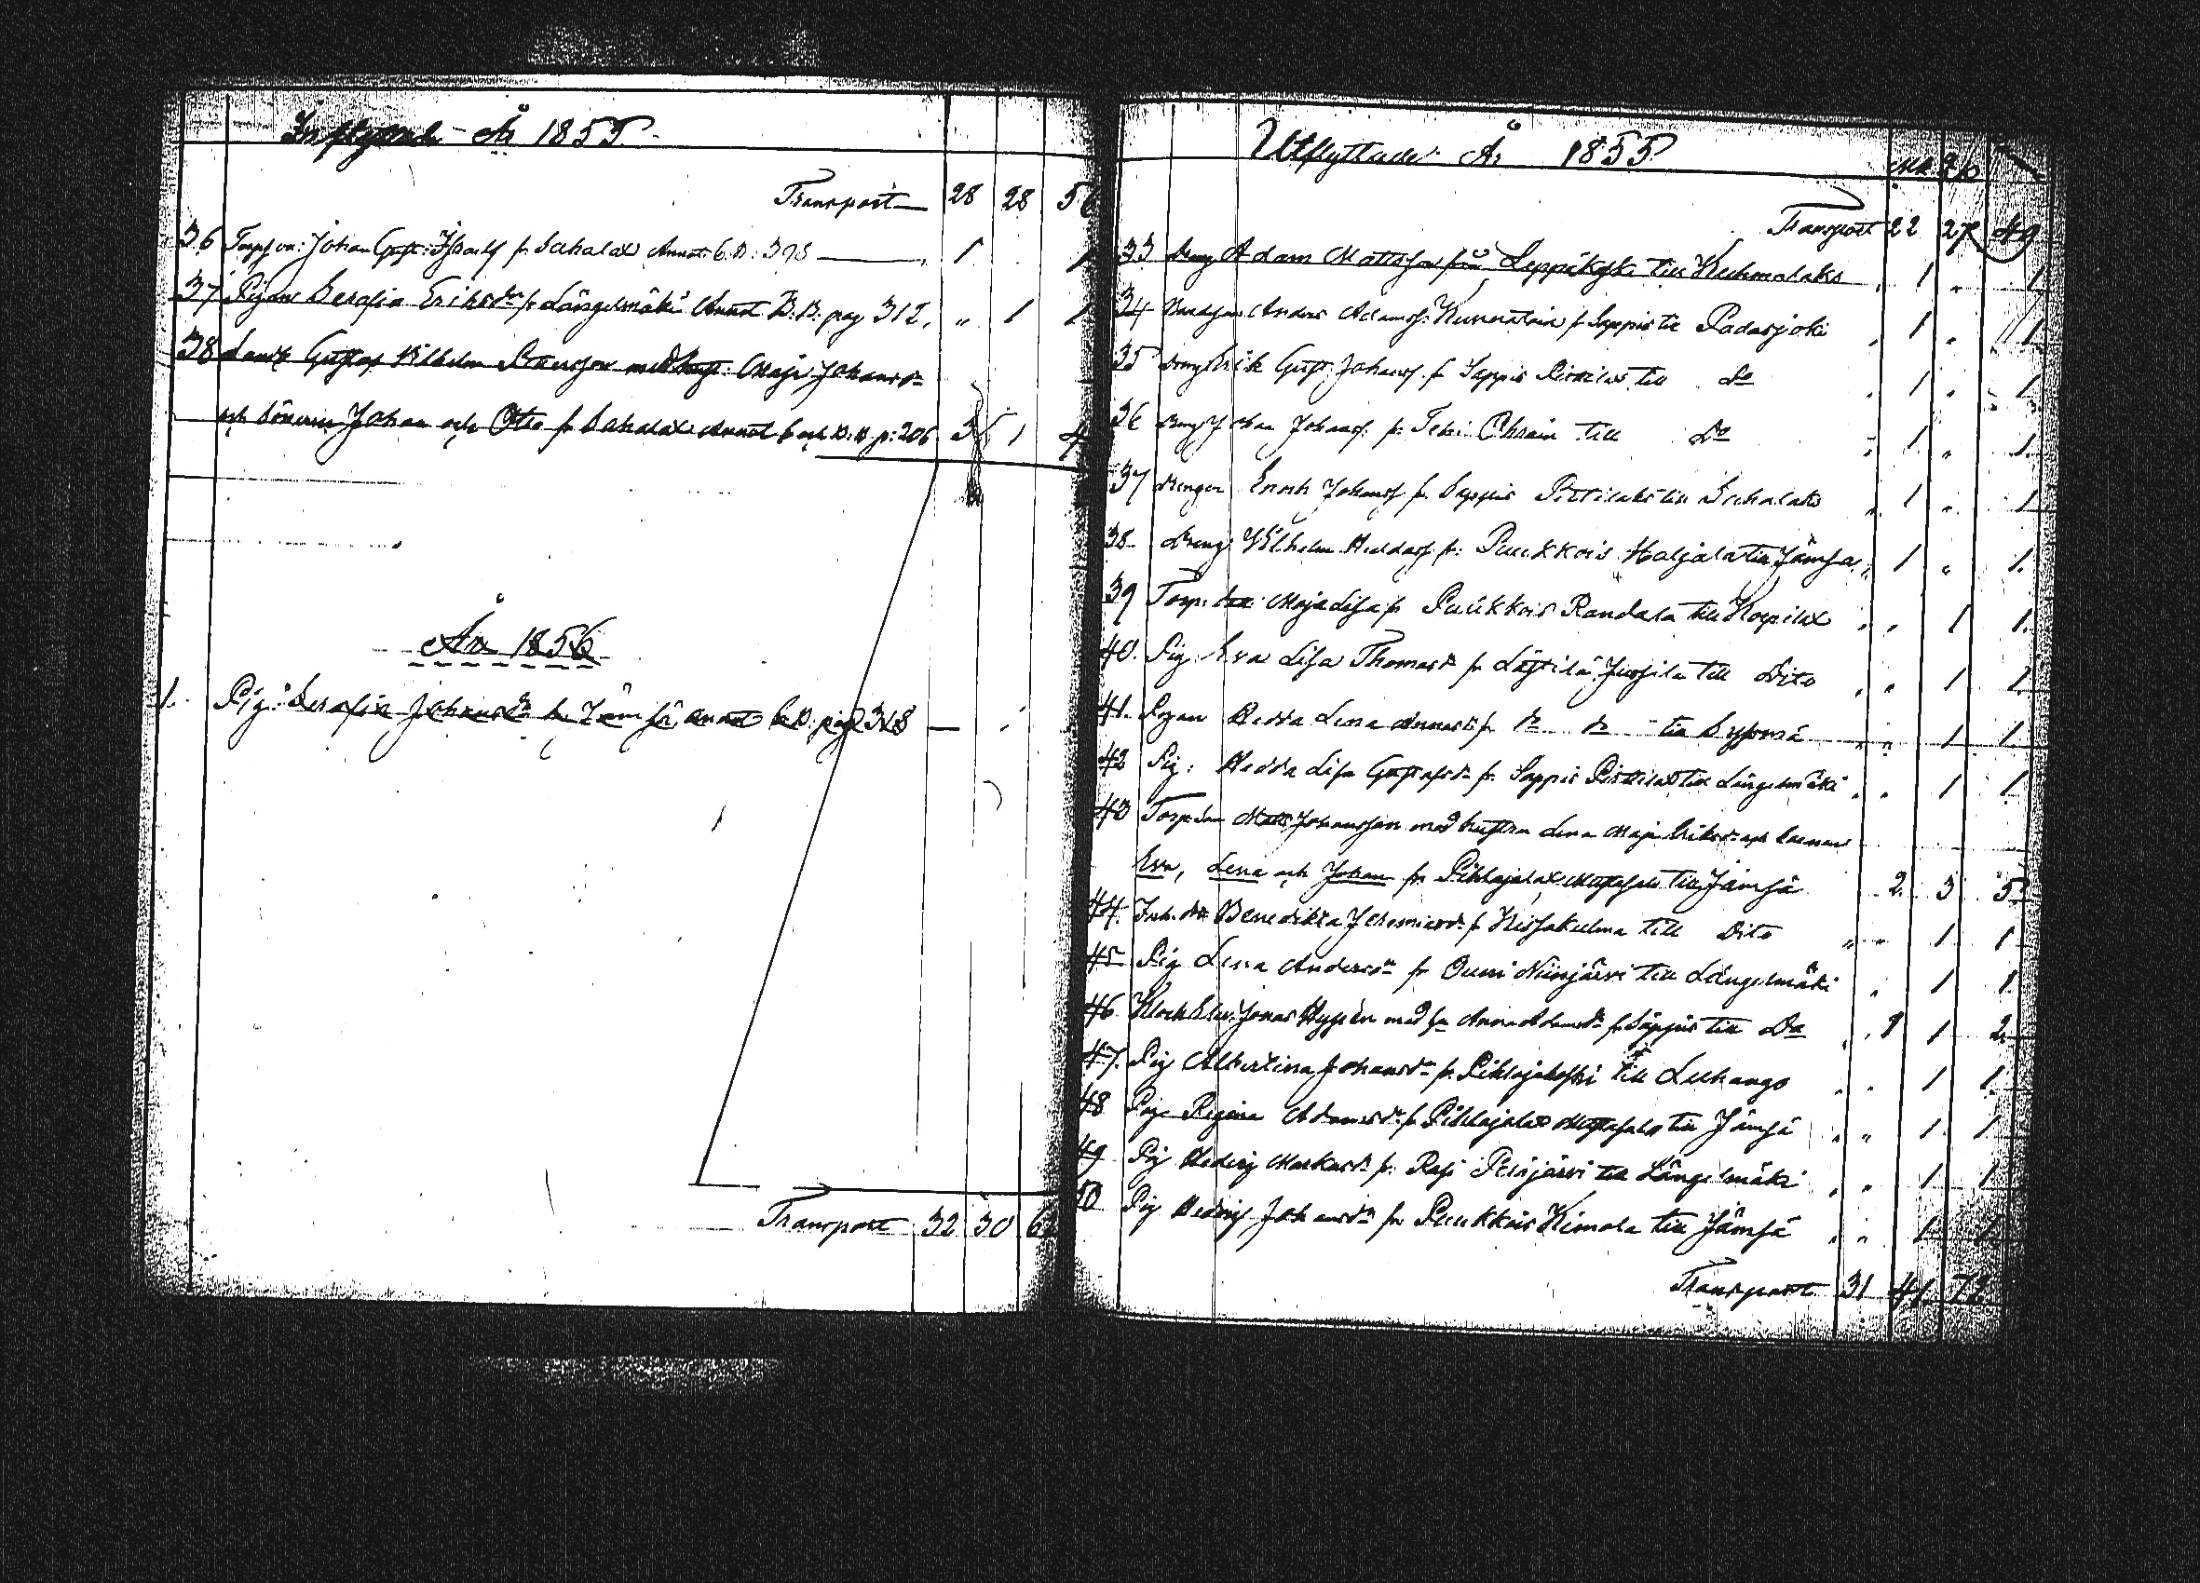 Inflyttade År 1855.
Transport 28 28 56
36 Torp: Johan Gust: f. Sahalax Annot. b. B: 395 1 1
37 Pigan Serafia Eriksdr fr Längelmäki Annot B.B: pag 312. " 1 1
38 Gustaf Vilhelm med hust: Maja Johansdr
och Sönerne Johan och Otto fr Sahalax Annot b och B.B p: 206 3 1 4
År 1856
1. Pig: Serafia Johansdr fr Jämsä annot b. B. pag 318
Transport 32 30 62
Utflyttade År 1855
Mk Qk
Transport 22 27 49
33 Dreng Adam Mattsson från Leppäkoski till Kuhmalaks " 1 " 1
34 Anders Adamss: fr Seppis till Padasjoki " 1 " 1
35 Dreng Erik Gust Johanss. fr Seppis Pittilax till Do " 1 " 1
36 Dreng Johan Johanss. fr. till Do " 1 " 1.
37 Drengen Enoch Johanss fr. Seppis till Sahalaks " 1 " 1
38 Dreng Vilhelm fr: Puukkois Haljala till Jämsä " 1 " 1.
39 Torp. Maja Lisa fr Puukkois Randala till Korpilax " " 1 1.
40. Pig Eva Lisa Thomasdr fr Lästilä Jussila till Dito " " 1 1
41. Pigan Hedda Lena fr Do Do till Sysmä " " 1 1
42 Pig: Hedda Lisa Gustafsdr fr. Seppis Pittilax till Längelmäki " " 1 1
43 Torp. Matts Johansson med hustru Lena Maja Eriksdr och barnen
Eva, Lena och Johan fr Pihlajalax till Jämsä 2 3 5
44. Inh. Benedikta Jeremiasdr fr Kissakulma till Dito " " 1 1
45 Pig Lena Andersdr fr Ouni Niinjärvi till Längelmäki " 1 1
46. Jonas Hyden med h. Anna Adamsdr fr Seppis till Do " 1 1 2.
47. Pig Albertina Johansdr fr. Pihlajakoski till Luhango " " 1 1
48 Pig Regina Adamsdr fr Pihlajalax till Jämsä " " 1 1
49 Pig Hedvig Markusdr fr: till Längelmäki " " 1 1
50 Pig Hedvig Johansdr fr Puukkois Kimola till Jämsä " " 1 1
Transport 31 41 72